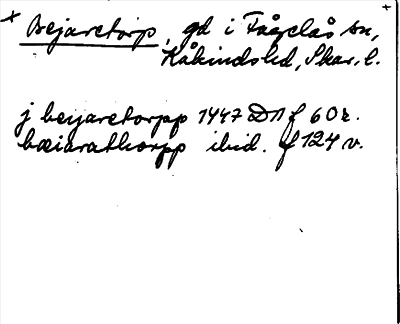 x Bejaretorp, gd i Fågelås sn,
Kåkindshd, Skar. l.
j beyaretorpp 1447 Dn f 60 r.
bæiarathorpp ibid. f 124 v.